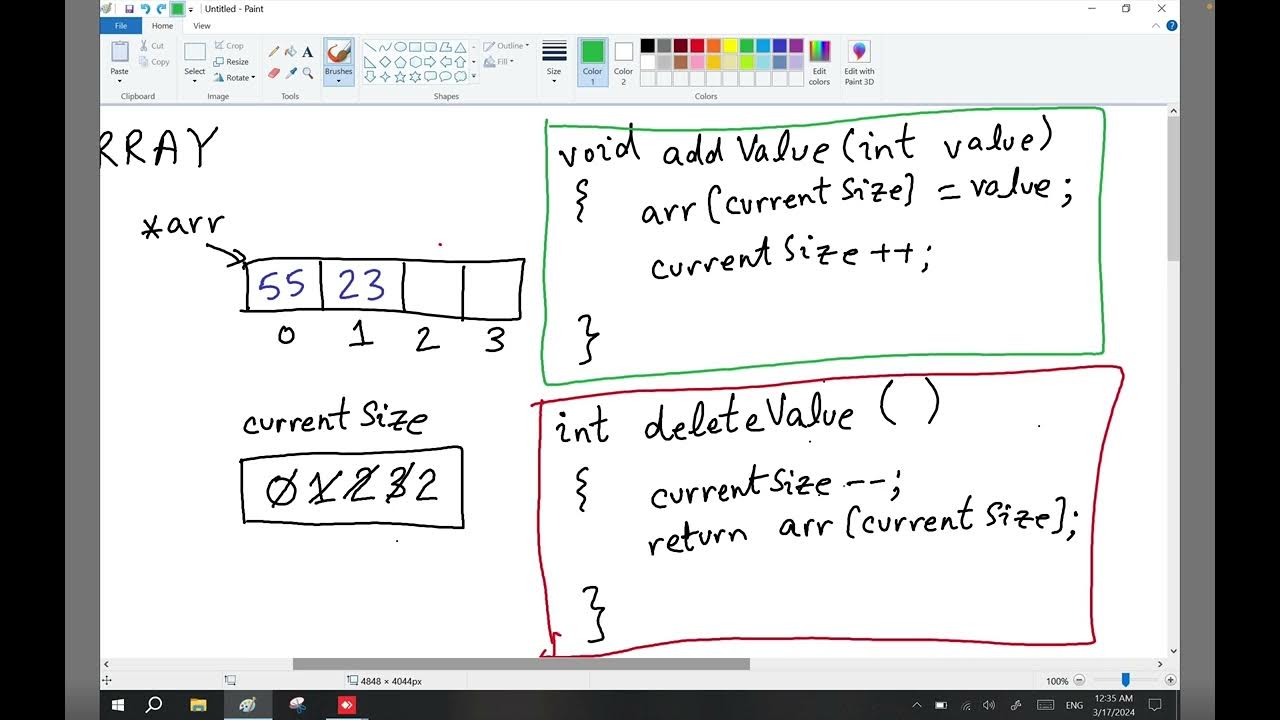 Untitled - Paint
File Home View
Paste
Cut
Copy
Clipboard
Select
Crop
Resize
Rotate
Image
Tools
Brushes
Outline
Fill
Shapes
Size
Color 1
Color 2
Colors
Edit colors
Edit with Paint 3D
RRAY
*arr
55 23
0 1 2 3
currentSize
0 1 2 3 2
void addValue (int value)
{ arr[currentSize] = value;
currentSize++;
}
int deleteValue ( )
{ currentSize--;
return arr[currentSize];
}
4848 × 4044px
100%
ENG
12:35 AM
3/17/2024